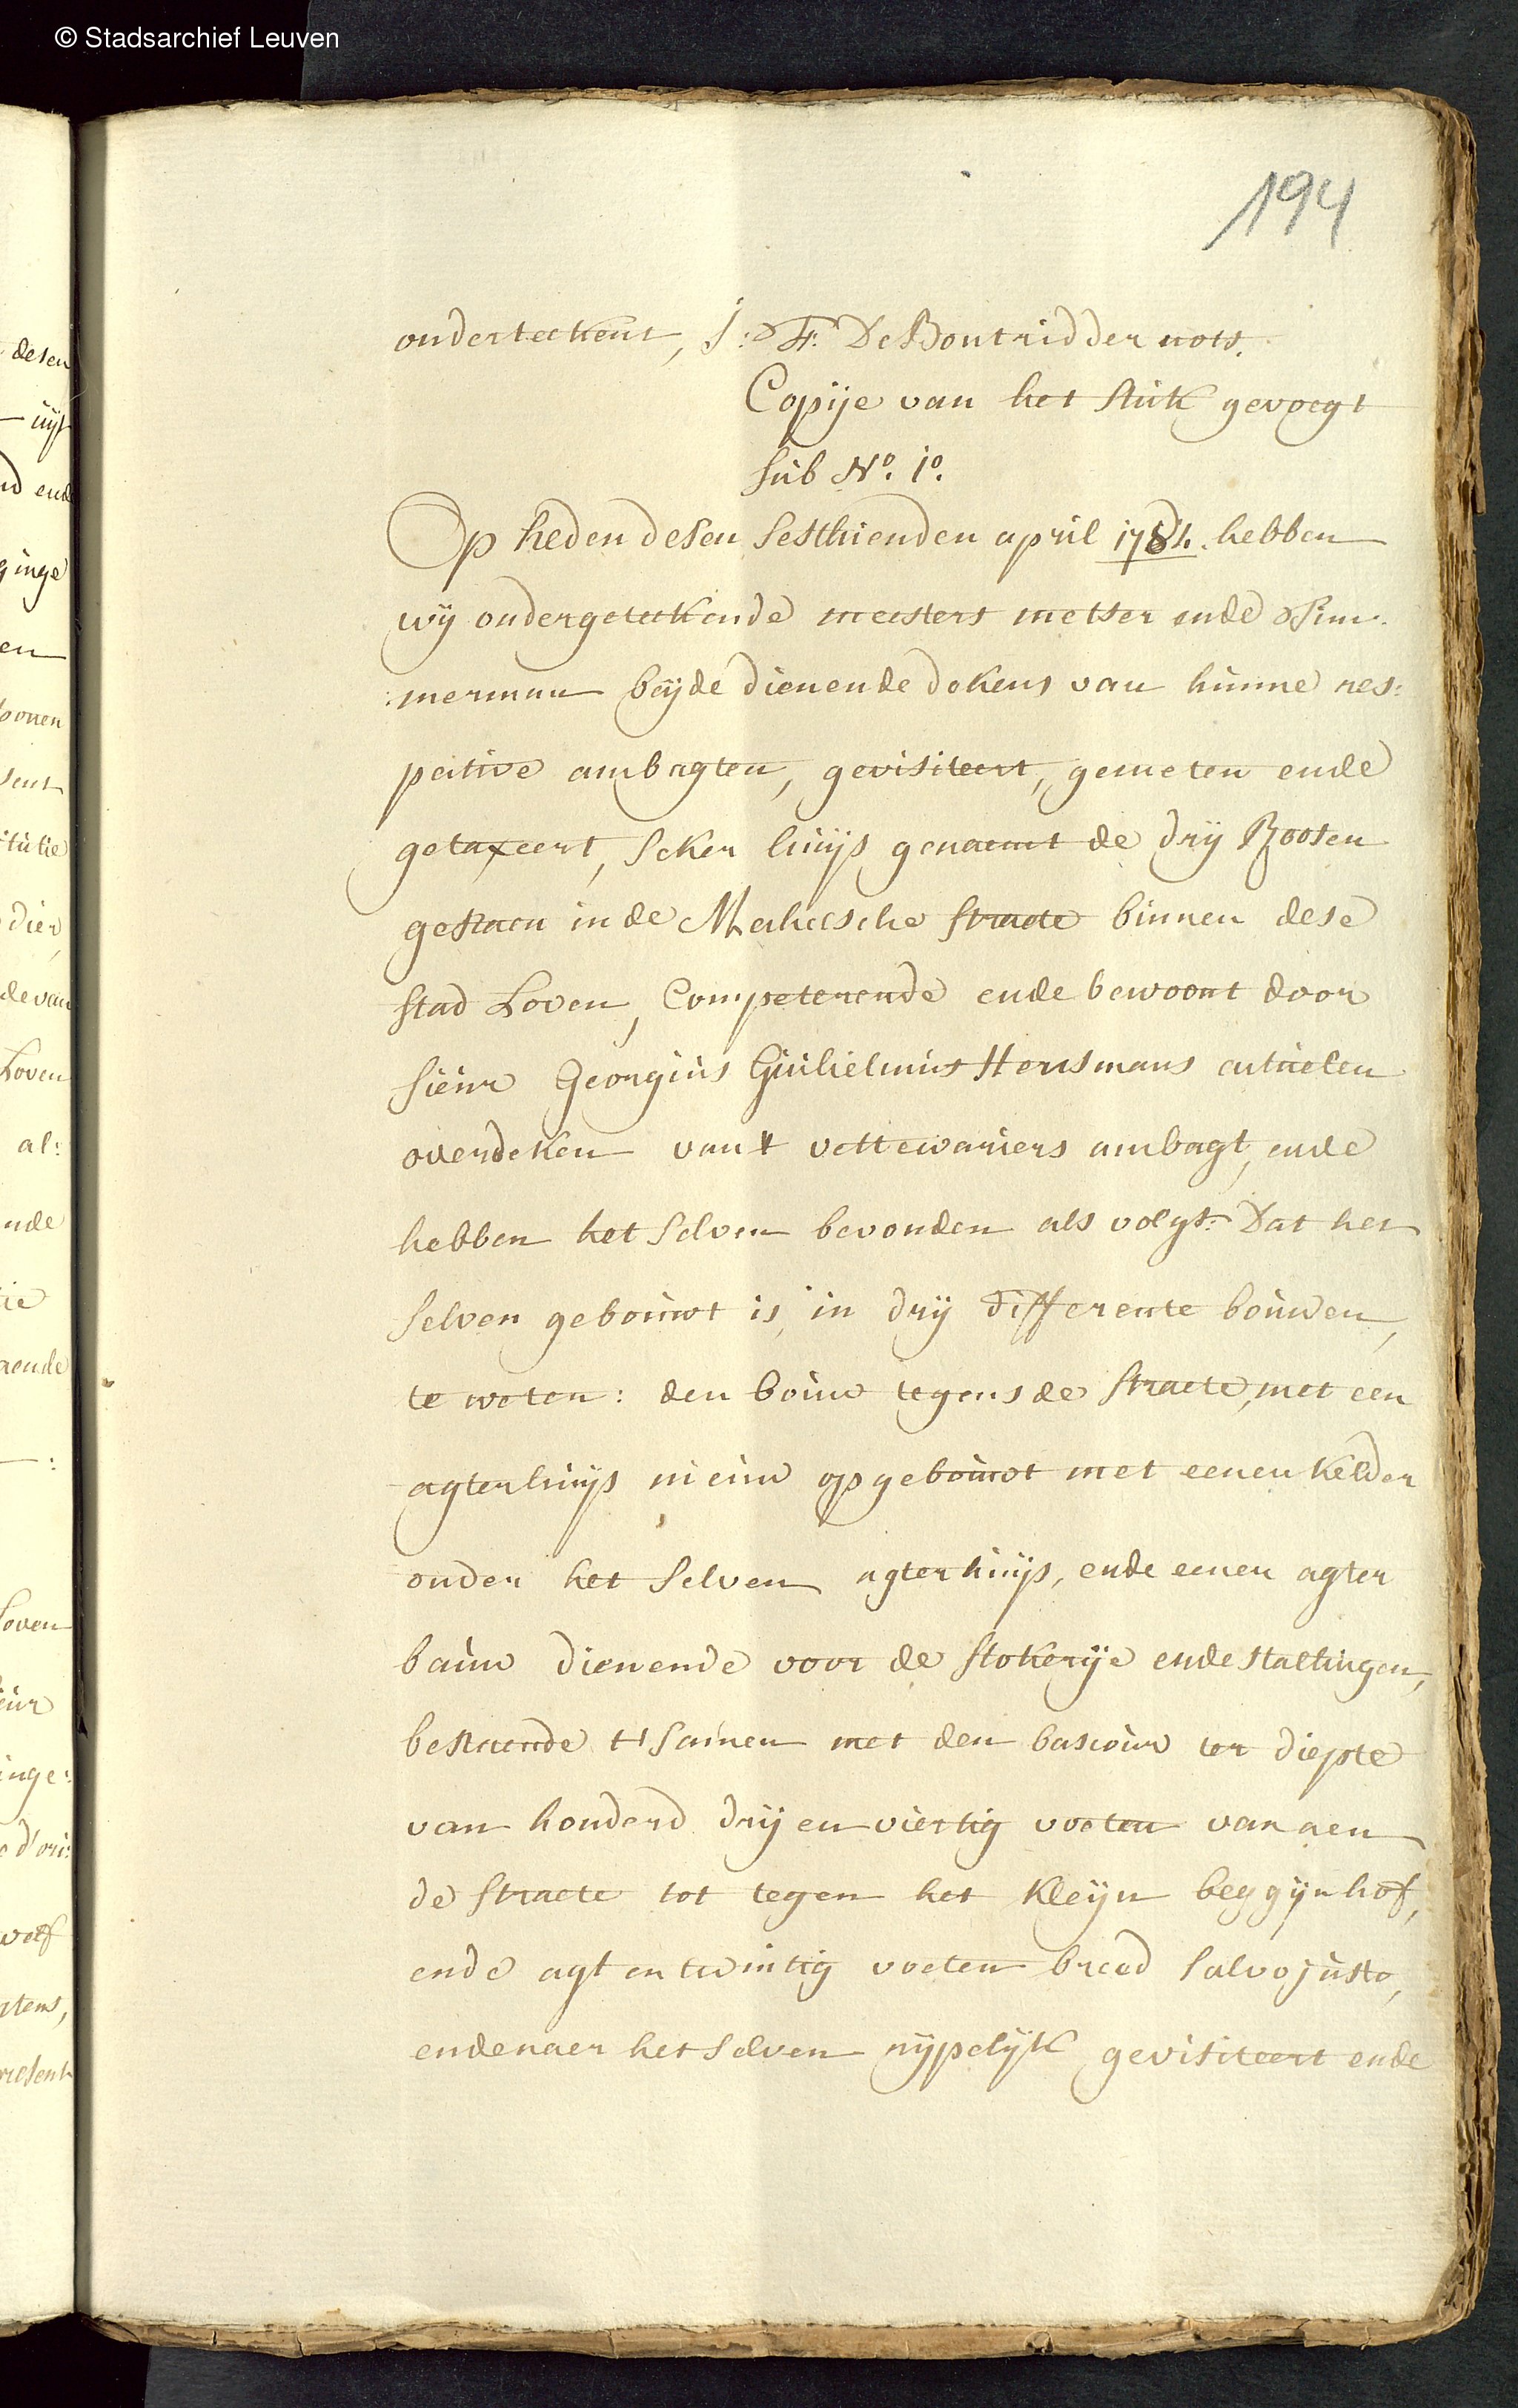 © Stadsarchief Leuven
194
onderteekent, J: F: De Bontridder nots.
Copije van het stuk gevoegt
sub N.º 1º.
Op heden desen sesthienden april 1784. hebben
wij ondergeteekende meesters metser ende Tim:
:merman beijde dienende dekens van hunne res:
pective ambagten, gevisiteert, gemeten ende
getaxeert, seker huijs genaemt de drij Roosen
gestaen in de Mechelsche straete binnen dese
stad Loven, Competerende ende bewoont door
sieur Georgius Guilielmus Hensmans actuelen
overdeken van't vettewariers ambagt, ende
hebben het selven bevonden als volgt: Dat het
selven gebouwt is, in drij differente bouwen,
te weten: den bouw tegens de straete, met een
agterhuijs nieuw opgebouwt met eenen kelder
onder het selven agterhuijs, ende eenen agter
bauw dienende voor de stokerije ende stallingen,
bestaende t'samen met den bascour ter diepte
van honderd drij en viertig voeten van aen
de straete tot tegen het kleijn beggijnhof,
ende agt en twintig voeten breed salvo justo,
ende naer het selven rijpelijk gevisiteert ende
desen
uijt
ende
ginge
en
sent
dier,
de van
Loven
al:
ende
Loven
inge: